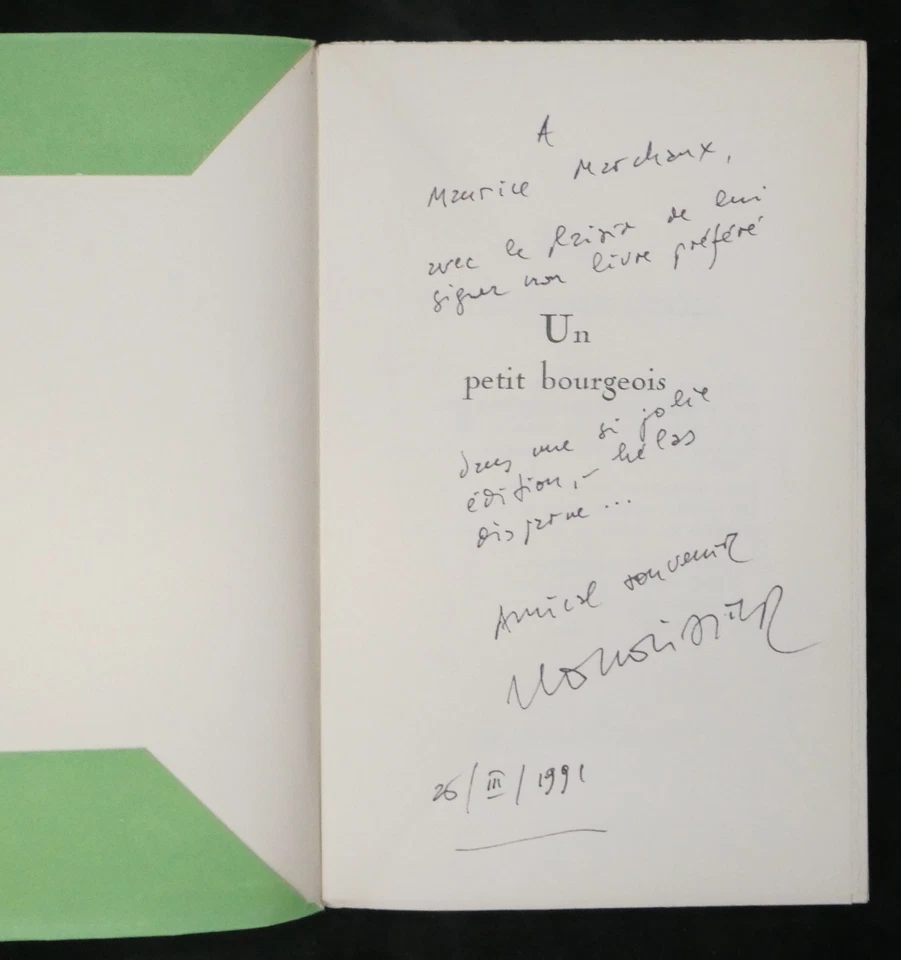 A
Maurice Marchaux,
avec le plaisir de lui
signer mon livre préféré
Un
petit bourgeois
dans une si jolie
édition, – hélas
disparue ...
Amical souvenir
26/III/1991